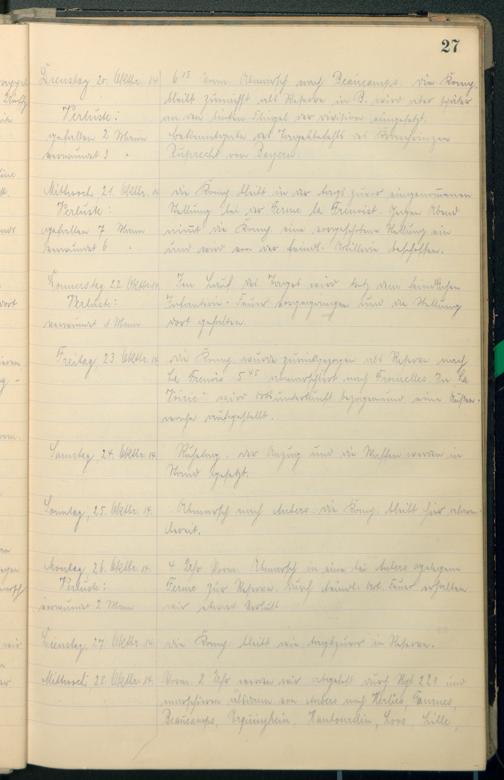 27
Dienstag 20. Oktbr. 14. 6 15 Vorm. Abmarsch nach Beaucamps. Die Komp.
bleibt zunächst als Reserve in B. wird aber später
Verluste: an den linken Flügel der Division eingesetzt.
gefallen 2 Mann Bekanntgabe des Tagesbefehls des Kronprinzen
verwundet 3 " Rupprecht von Bayern.
Mittwoch 21. Oktbr. 14. Die Komp. bleibt in der tags zuvor eingenommenen
Verluste: Stellung bei der Ferme la Gegen Abend
gefallen 7 Mann nimmt die Komp. eine vorgeschobene Stellung ein
verwundet 6 " und wird von der feindl. Artillerie beschossen.
Donnerstag 22. Oktbr. 14. Im Lauf des Tages wird trotz dem feindlichen
Verluste: Infanterie-Feuer vorgegangen und die Stellung
verwundet 1 Mann dort gehalten.
Freitag 23. Oktbr. 14. Die Komp. wurde zurückgezogen als Reserve nach
Le 5 45 abmarschiert nach Fromelles. In La
wird Ortsunterkunft bezogen und eine
wache aufgestellt.
Samstag, 24. Oktbr. 14. Ruhetag. Der Anzug und die Waffen werden in
Stand gesetzt.
Sonntag, 25. Oktbr. 14. Abmarsch nach Aubers. Die Komp. bleibt hier alarm-
bereit.
Montag, 26. Oktbr. 14. 4 Uhr Vorm. Abmarsch in eine bei Aubers gelegene
Verluste: Ferme zur Reserve. Durch feindl. Art. Feuer erhalten
verwundet 2 Mann wir etwas Verlust.
Dienstag, 27. Oktbr. 14. Die Komp. bleibt wie tagszuvor in Reserve.
Mittwoch, 28. Oktbr. 14. Vorm. 2 Uhr werden wir abgelöst durch Rgt 221 und
marschieren alsdann von Aubers nach Herlies, Fournes,
Beaucamps, Haubourdin, Loos, Lille,